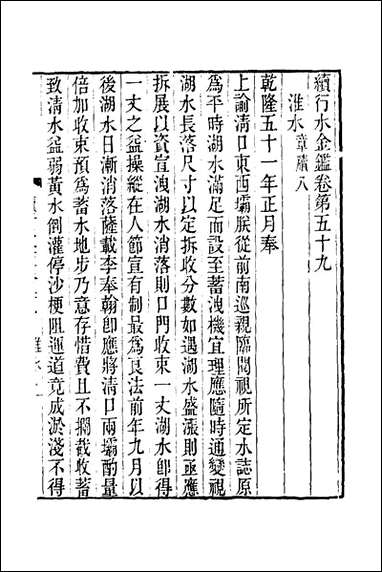 續行水金鑑卷第五十九
淮水章牘八
乾隆五十一年正月奉
上諭清口東西壩朕從前南巡親臨閱視所定水誌原
爲平時湖水滿足而設至蓄洩機宜理應隨時通變視
湖水長落尺寸以定拆收分數如遇湖水盛漲則亟應
拆展以資宣洩湖水消落則口門收束一丈湖水卽得
一丈之益操縱在人節宣有制最爲良法前年九月以
後湖水日漸消落薩載李奉翰卽應將清口兩壩酌量
倍加收束預爲蓄水地步乃意存惜費且不攔截收蓄
致清水益弱黃水倒灌停沙梗阻運道竟成淤淺不得